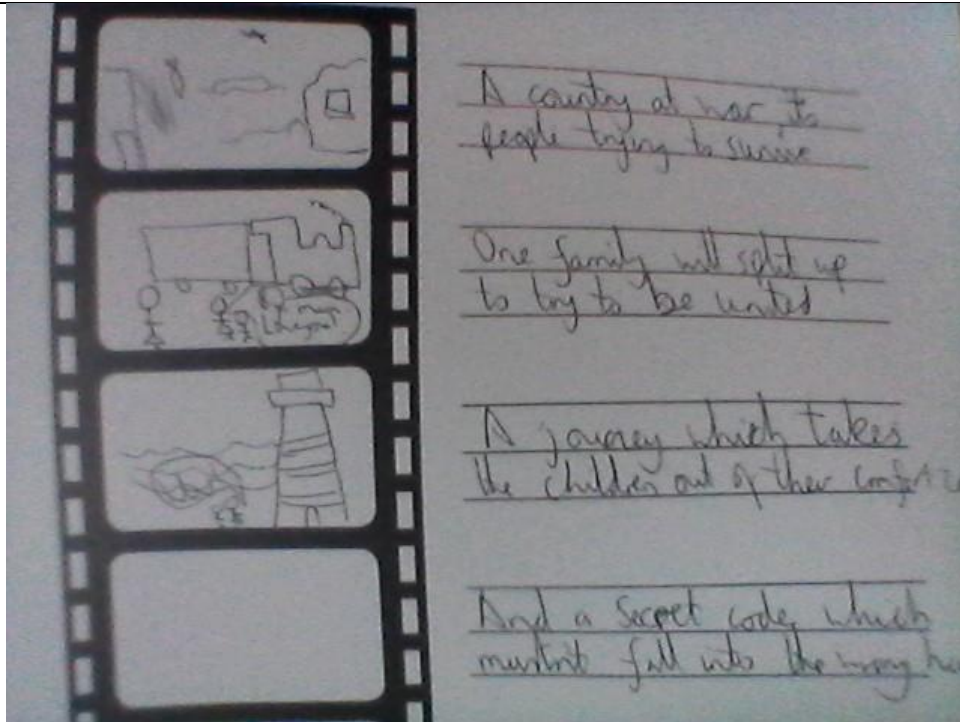 A country at war, its
people trying to survive
One family will split up
to try to be united
A journey which takes
the children out of their comfort
And a secret code, which
mustnt fall into the wrong